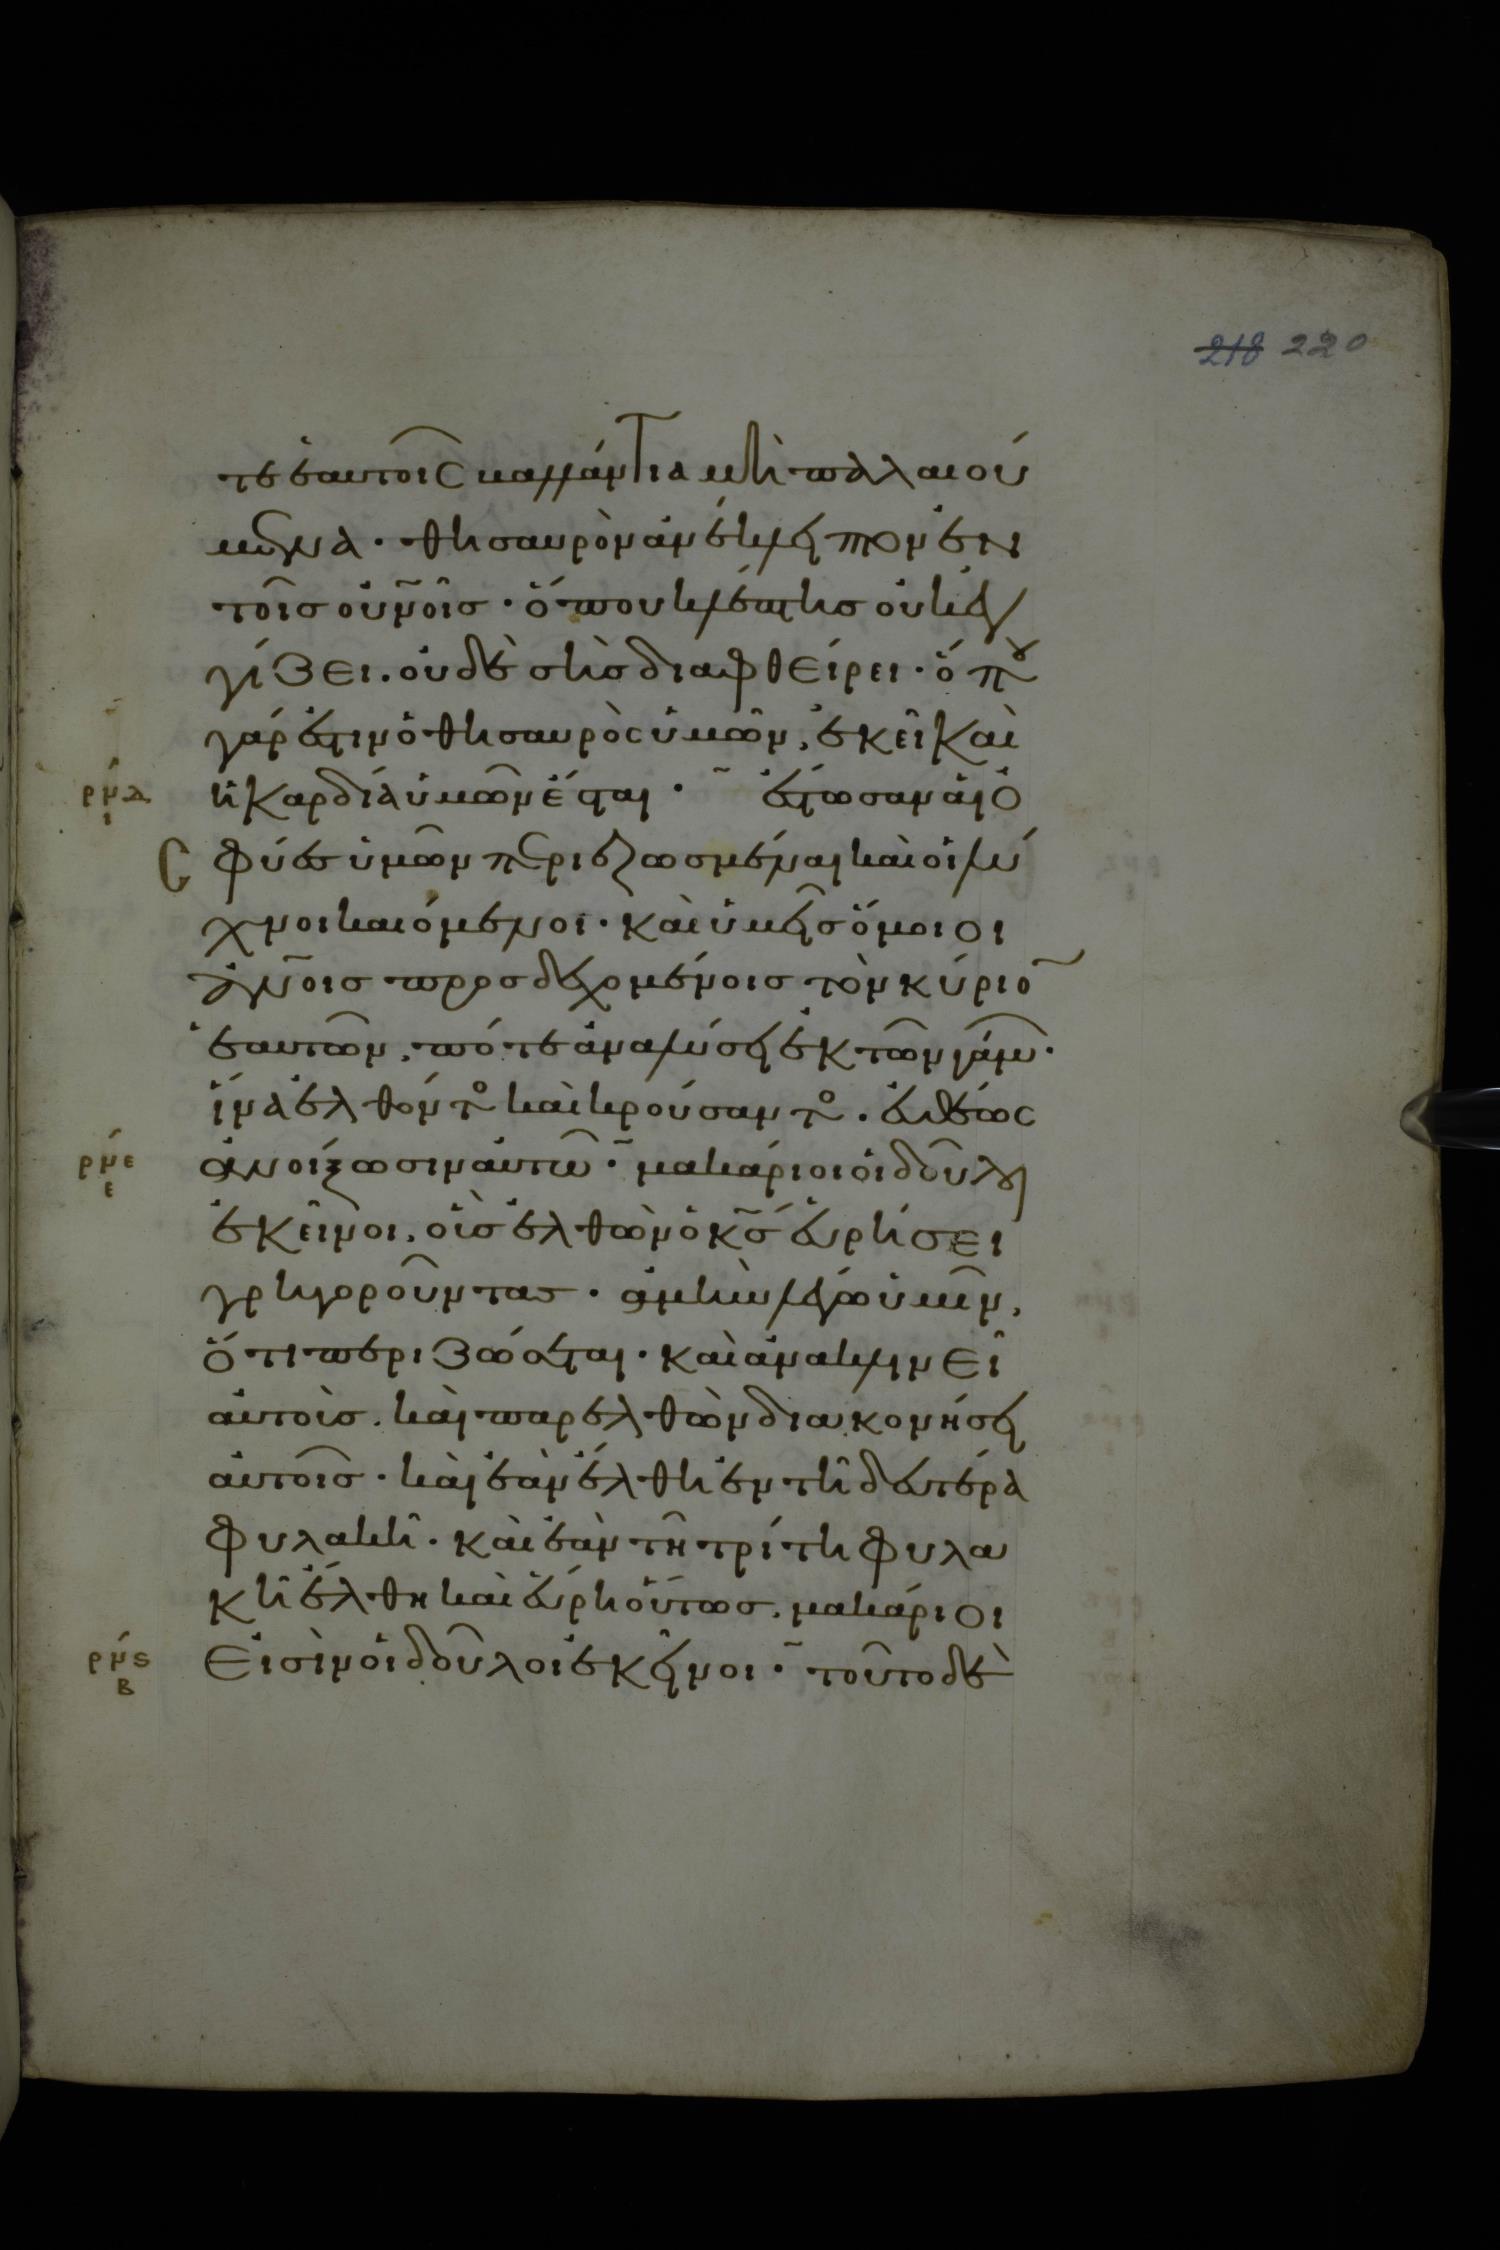 218 220
τε ἑαυτοῖς βαλλάντια μὴ παλαιού
μενα · θησαυρὸν ἀνέκλειπτον ἐν
τοῖς οὐνοῖς · ὅπου κλέπτης οὐκ ἐγ
γίζει · οὐδὲ σὴς διαφθείρει · ὅπου
γάρ ἐστιν ὁ θησαυρὸς ὑμῶν, ἐκεῖ καὶ
ρμδ ι ἡ καρδία ὑμῶν ἔσται · ἔστωσαν αἱ ὀ
σφύες ὑμῶν περιεζωσμέναι καὶ οἱ λύ
χνοι καιόμενοι · καὶ ὑμεῖς ὅμοιοι
ἀνοις προσδεχομένοις τὸν κύριο
ἑαυτῶν, πότε ἀναλύσει ἐκ τῶν γάμων ·
ἵνα ἐλθόντος καὶ κρούσαντος · εὐθέως
ρμε ε ἀνοίξωσιν αὐτῶ · μακάριοι οἱ δοῦλοι
ἐκεῖνοι, οἳς ἐλθὼν ὁ κς εὑρήσει
γρηγοροῦντας · ἀμὴν λέγω ὑμῖν,
ὅτι περιζώσεται · καὶ ἀνακλινεῖ
αὐτοὺς · καὶ παρελθὼν διακονήσει
αὐτοῖς · καὶ ἐὰν ἔλθη ἐν τῆ δευτέρα
φυλακῆ · καὶ ἐὰν τῆ τρίτη φυλα
κῆ ἔλθη καὶ εὕρη οὕτως, μακάριοι
ρμς β εἰσὶν οἱ δοῦλοι ἐκεῖνοι · τοῦτο δὲ